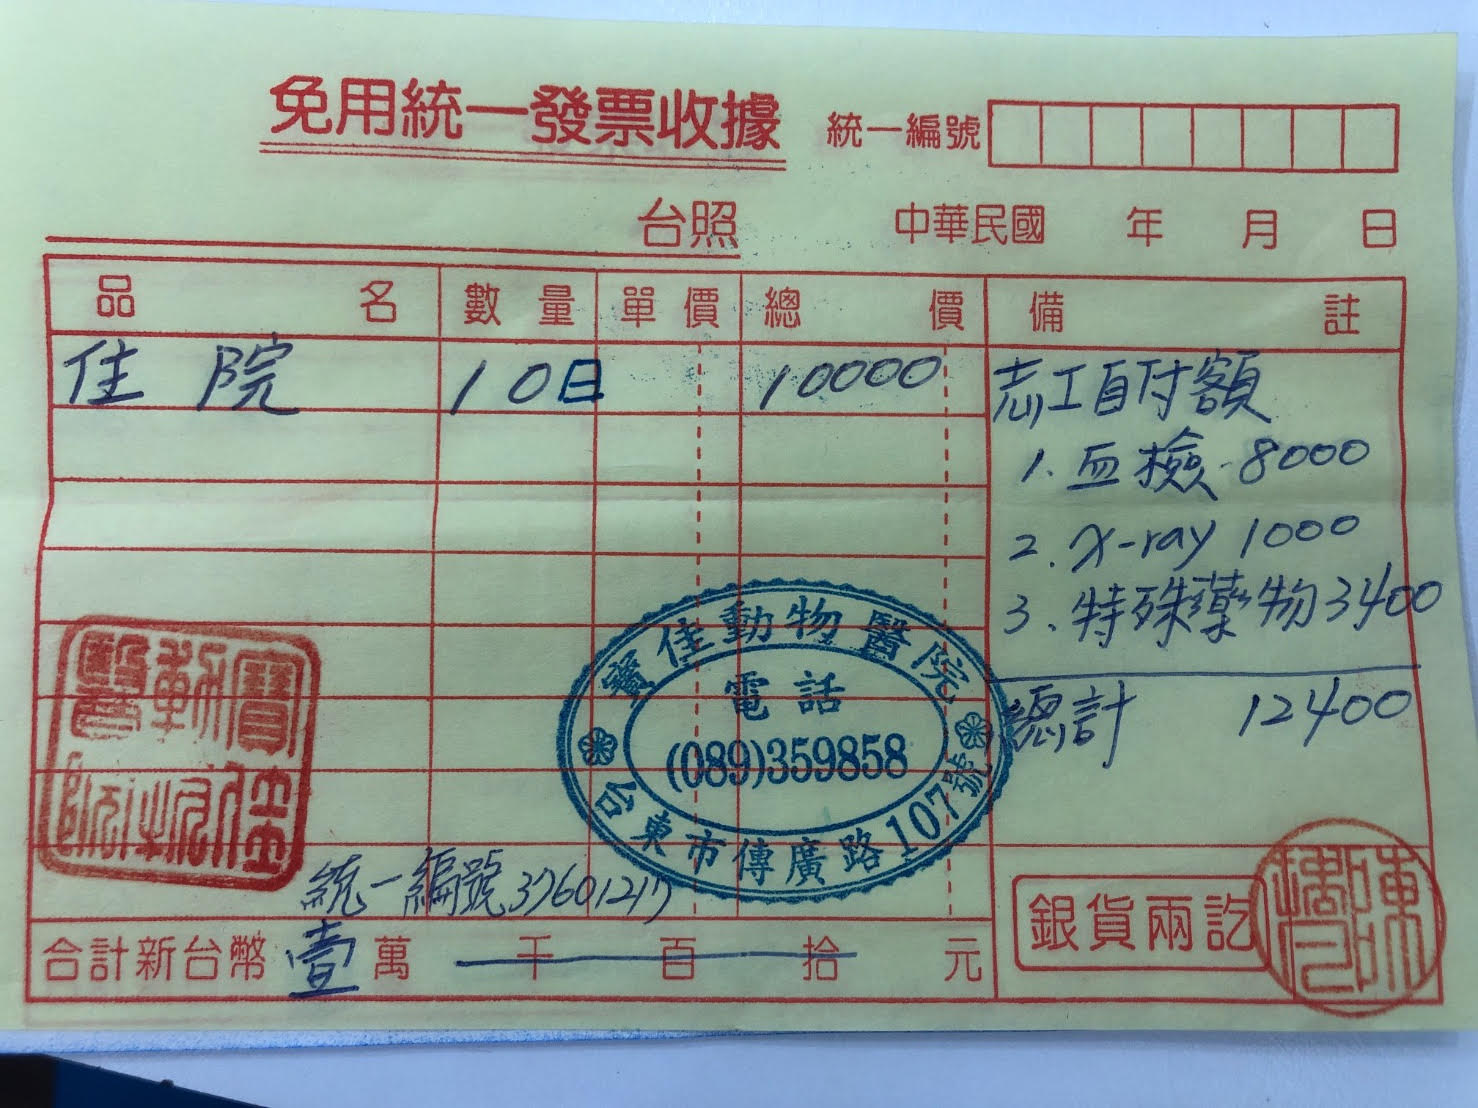 免用統一發票收據
統一編號
台照
中華民國 年 月 日
品名 數量 單價 總價 備註
住院 10日 10000
志工自付額
1. 血檢 8000
2. X-ray 1000
3. 特殊藥物 3400
總計 12400
寶佳動物醫院
電話
(089)359858
台東市傳廣路107號
統一編號37601217
合計新台幣 壹萬 千 百 拾 元
銀貨兩訖